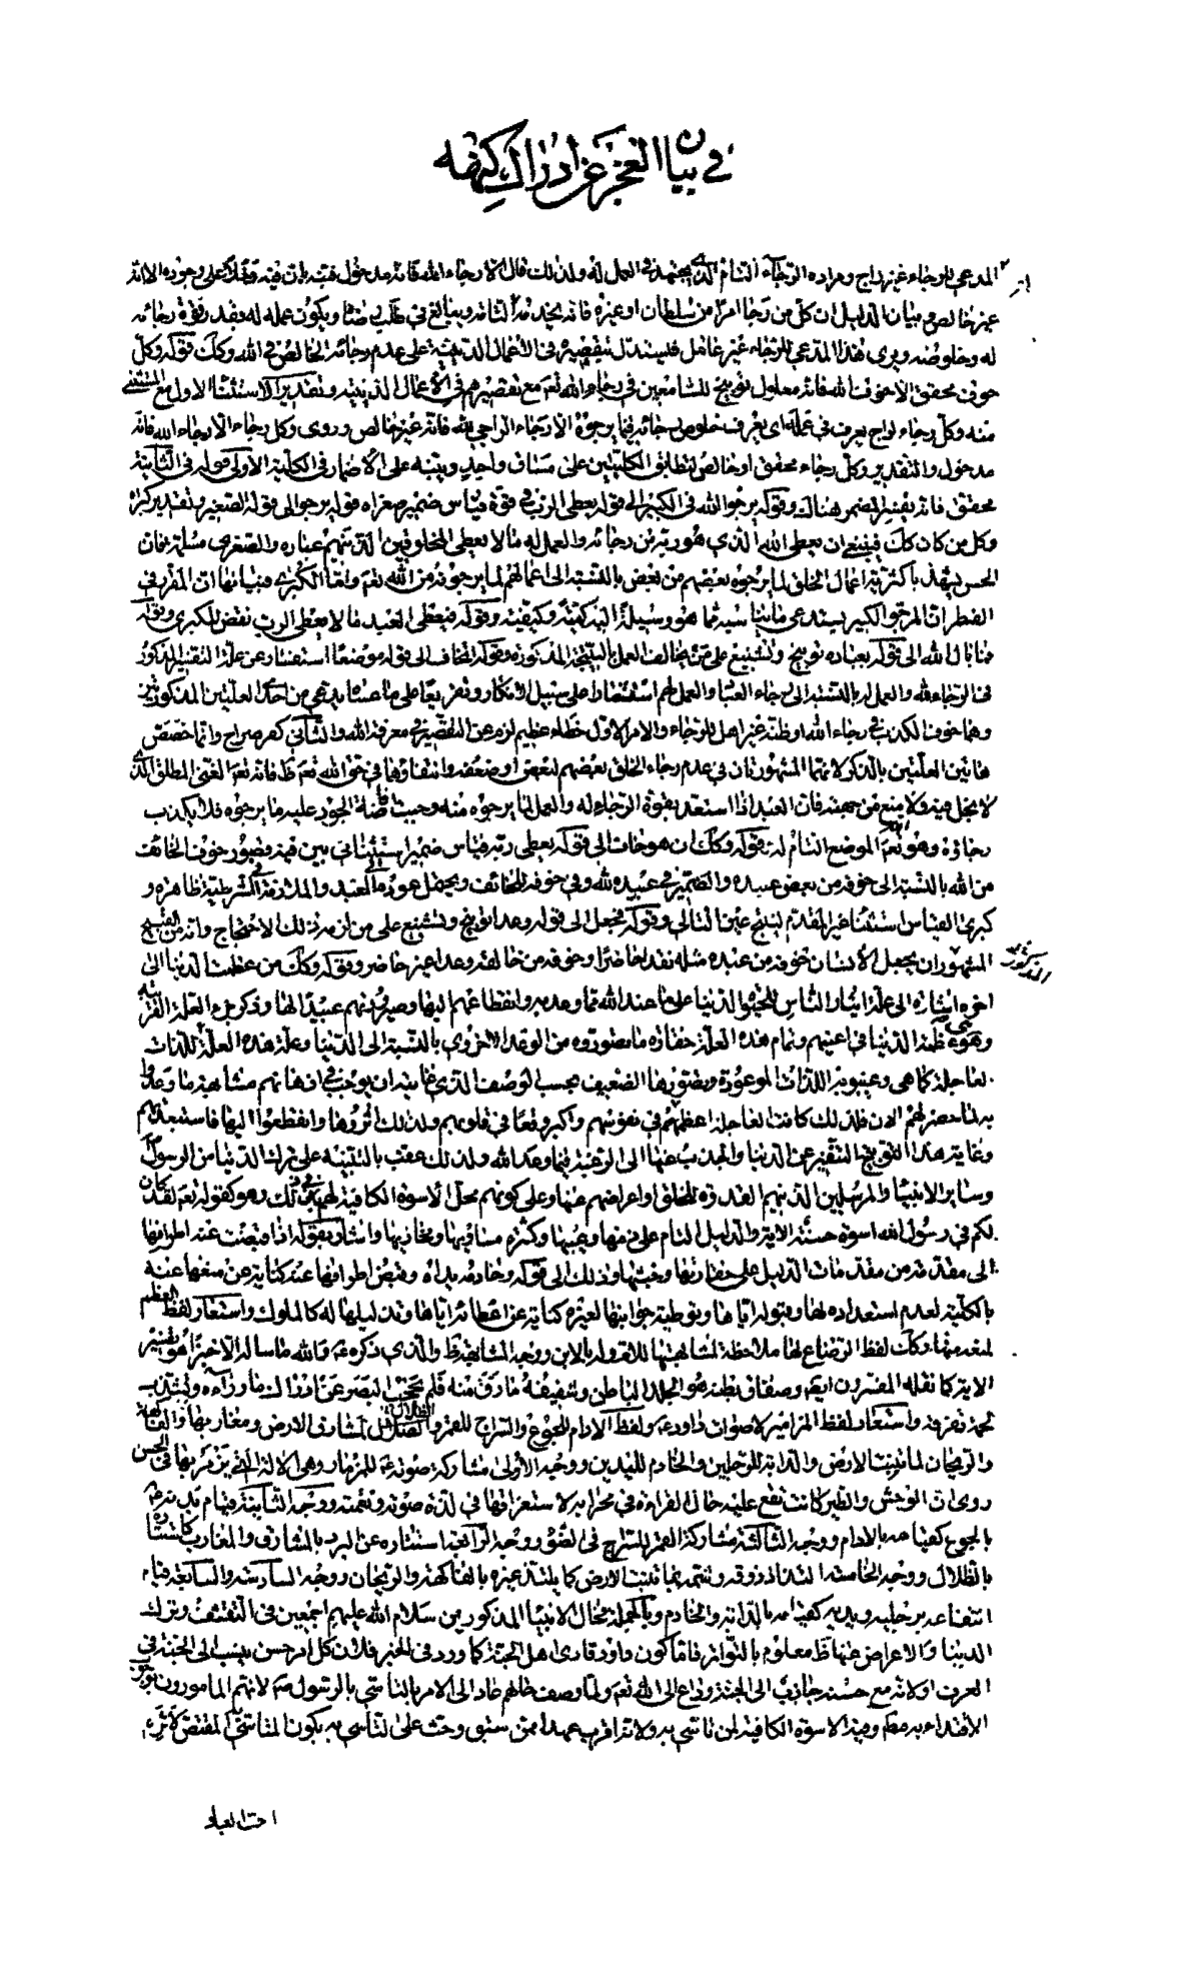 في بيان العجز عن ادراك كيفيه
المدعي للرجاء غير راج ومراده الرجاء التام الذي يجتهد في العمل له ولذلك قال الا رجاء الله فانه مدخول فنبه بان فيه دخلا على وجوده الا انه
غير خالص وبيان الدليل ان كل من رجا امرا من سلطان او غيره فانه يخدمه الخدمة التامه ويبالغ في طلب رضاه ويكون عمله له بقدر قوة رجائه
له وخلوصه ويرى هذا المدعي للرجاء غير عامل فيستدل بتقصيره في الاعمال الدينية على عدم رجائه الخالص في الله وكك قوله وكل
خوف محقق الا خوف الله فانه معلول توبيخ للسامعين في رجاء الله تع مع تقصيرهم في الاعمال الدينية وتقدير الاستثناء الاول مع المستثنى
منه وكل رجاء لراج يعرف في عمله اي يعرف خلوص رجائه فيما يرجوه الا رجاء الراجي لله فانه غير خالص وروى وكل رجاء الا رجاء الله فانه
مدخول والتقدير وكل رجاء محقق او خالص لتطابق الكليتين على مساق واحد وينبه على الاضمار في الكلية الاولى قوله في الثانية
محقق فانه يفسر المضمر هناك وقوله يرجو الله في الكبير الى قوله يعطى الرب في قوة قياس ضمير صغراه قوله يرجو الى قوله الصغير وتقدير كبراه
وكل من كان كك فينبغي ان يعطى الله الذي هو ربه من رجائه والعمل له ما لا يعطى المخلوقين الذينهم عباده والصغرى مسلمة فان
الحس يشهد باكثرية اعمال الخلق لما يرجوه بعضهم من بعض بالنسبة الى اعمالهم لما يرجونه من الله تع واما الكبرى فبيانها ان المقرر في
الفطر ان المرجو الكبير يستدعى ما يناسبه مما هو وسيلة اليه كمية وكيفية وقوله فيعطى العبد ما لا يعطى الرب نقض للكبرى وقوله
فما بال الله الى قوله بعباده توبيخ وتشنيع على من يخالف العمل بالنتيجة المذكورة وقوله اتخاف الى قوله موضعا استفسار عن علة التقصير المذكور
في الرجاء لله والعمل له بالنسبة الى رجاء العباد والعمل لهم استفسارا على سبيل الانكار وتقريعا على ما عساه يدعي من احدى العلتين المذكورتين
وهما خوف الكذب في رجاء الله او ظنه غير اهل للرجاء والامر الاول خطاء عظيم لزم عن التقصير في معرفة الله والثاني كفر صراح وانما خصص
هاتين العلتين بالذكر لانهما المشهورتان في عدم رجاء الخلق بعضهم لبعض او ضعفه وانتفاؤهما في حق الله تع ظ فانه تع الغني المطلق الذي
لا بخل فيه ولا منع من جهته فان العبد اذا استعد بقوة الرجاء له والعمل لما يرجوه منه وجب افاضة الجود عليه ما يرجوه فلا يكذب
رجاؤه وهو تع الموضع التام له وقوله وكك ان هو خاف الى قوله يعطى ربه قياس ضمير استثنائي بين فيه قصور خوف الخائف
من الله بالنسبة الى خوفه من بعض عبيده والضمير في عبيده لله وفي خوفه للخائف ويحتمل عوده الى العبد والملازمة في الشرطية ظاهرة و
كبرى القياس استثناء عين المقدم لينتج عين التالي وقوله فجعل الى قوله وعدا توبيخ وتشنيع على من لزمه ذلك الاحتجاج وانه من القبيح
المشهور ان يجعل الانسان خوفه من عبد مثله نقدا حاضرا وخوفه من خالقه وعدا غير حاضر وقوله وكك من عظمت الدنيا الى
اخره اشارة الى علة ايثار الناس للحيوة الدنيا على ما عند الله مما وعد به وانقطاعهم اليها وصيرورتهم عبيدا لها وذكر جزء العلة القريبة
وهو عظمة الدنيا في اعينهم وتمام هذه العلة حقارة ما تصوروه من الوعد الاخروي بالنسبة الى الدنيا وعلة هذه العلة للذات
العاجلة كما هي وغيبوبة اللذات الموعودة وتصورها الضعيف بحسب الوصف الذي غايته ان يوجب في اذهانهم مشابهة ما وعدوا
به لما حضر لهم الان فلذلك كانت العاجلة اعظم في نفوسهم واكبر وقعا في قلوبهم ولذلك اثروها وانقطعوا اليها فاستعبدتهم
وغاية هذا التوبيخ التنفير عن الدنيا والجذب عنها الى الرغبة فيما وعد الله ولذلك عقب بالتنبيه على ترك الدنيا من الرسول ص
وساير الانبيا والمرسلين الذينهم القدوة للخلق واعراضهم عنها وعلى كونهم محل الاسوة الكافية لهم في ذلك وهو كقوله تع لقد كان
لكم في رسول الله اسوة حسنة الاية والدليل التام على ذمها وعيبها وكثرة مساويها ومخازيها واشار بقوله اذا قبضت عنه اطرافها
الى مقدمة من مقدمات الدليل على حقارتها وخبثها وذلك الى قوله وخادمه يداه وقبض اطرافها عنه كناية عن منعها عنه
بالكلية لعدم استعداده لها وقبوله اياها وتوطية جوانبها لغيره كناية عن اعطائه اياها وتذليلها له كالملوك واستعار لفظ الفطم
لمنعه منها وكك لفظ الرضاع لها ملاحظة لمشابهتها للام وله بالابن ووجه المشابهة ظ والذي ذكره ع والله ما ساله الا خبزا هو تفسير
الاية كما نقله المفسرون ايضا وصفاق بطنه هو الجلد الباطن وشفيفه ما رق منه فلم يحجب البصر عن ادراك ما وراءه وتشذب
لحمه تفرقه واستعار لفظ المزامير لاصوات داود ع ولفظ الادام للجوع والسراج للقمر والظلال لمشارق الارض ومغاربها والفاكهة
والريحان لما تنبت الارض والدابة للرجلين والخادم لليدين ووجه الاولى مشاركة صوته ع للمزمار وهي الالة التي يزمر بها في الحسن
روى ان الوحش والطير كانت تقع عليه حال القراءة في محرابه لاستغراقها في لذة صوته ونغمته ووجه الثانية قيام بدنه ع
بالجوع كقيامه بالادام ووجه الثالثة مشاركة القمر للسراج في الضوء ووجه الرابعة استتاره عن البرد بالمشارق والمغارب كاستتاره
بالظلال ووجه الخامسة التذاذ ذوقه وشمه بما تنبت الارض كما يلتذ غيره بالفاكهة والريحان ووجه السادسة والسابعة قيام
انتفاعه برجليه ويديه كقيامه بالدابة والخادم وبالجملة فحال الانبيا المذكورين سلام الله عليهم اجمعين في التقشف وترك
الدنيا والاعراض عنها ظ معلوم بالتواتر فاما كون داود قارى اهل الجنة كما ورد في الخبر فلان كل امر حسن ينسب الى الجنة في
العرف او لانه مع حسنه جاذب الى الجنة وداع الى الله تع ولما وصف حالهم عاد الى الامر بالتاسي بالرسول ص لانهم المامورون بوجوب
الاقتداء به مطم وفيه الاسوة الكافية لمن تاسى به ولانه اقرب عهدا ممن سبق وحث على التاسي به بكون المتاسي المقتص لاثره
احب العباد